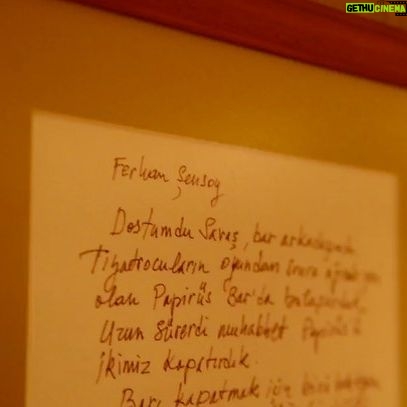 GETHU CINEMA
Ferhan Şensoy
Dostumdu Savaş, bar arkadaşımdı.
Tiyatrocuların oyundan sonra
olan Papirüs Bar'da buluşurduk.
Uzun sürerdi muhabbet Papirüs'ü
ikimiz kapatırdık.
Barı kapatmak için bizi